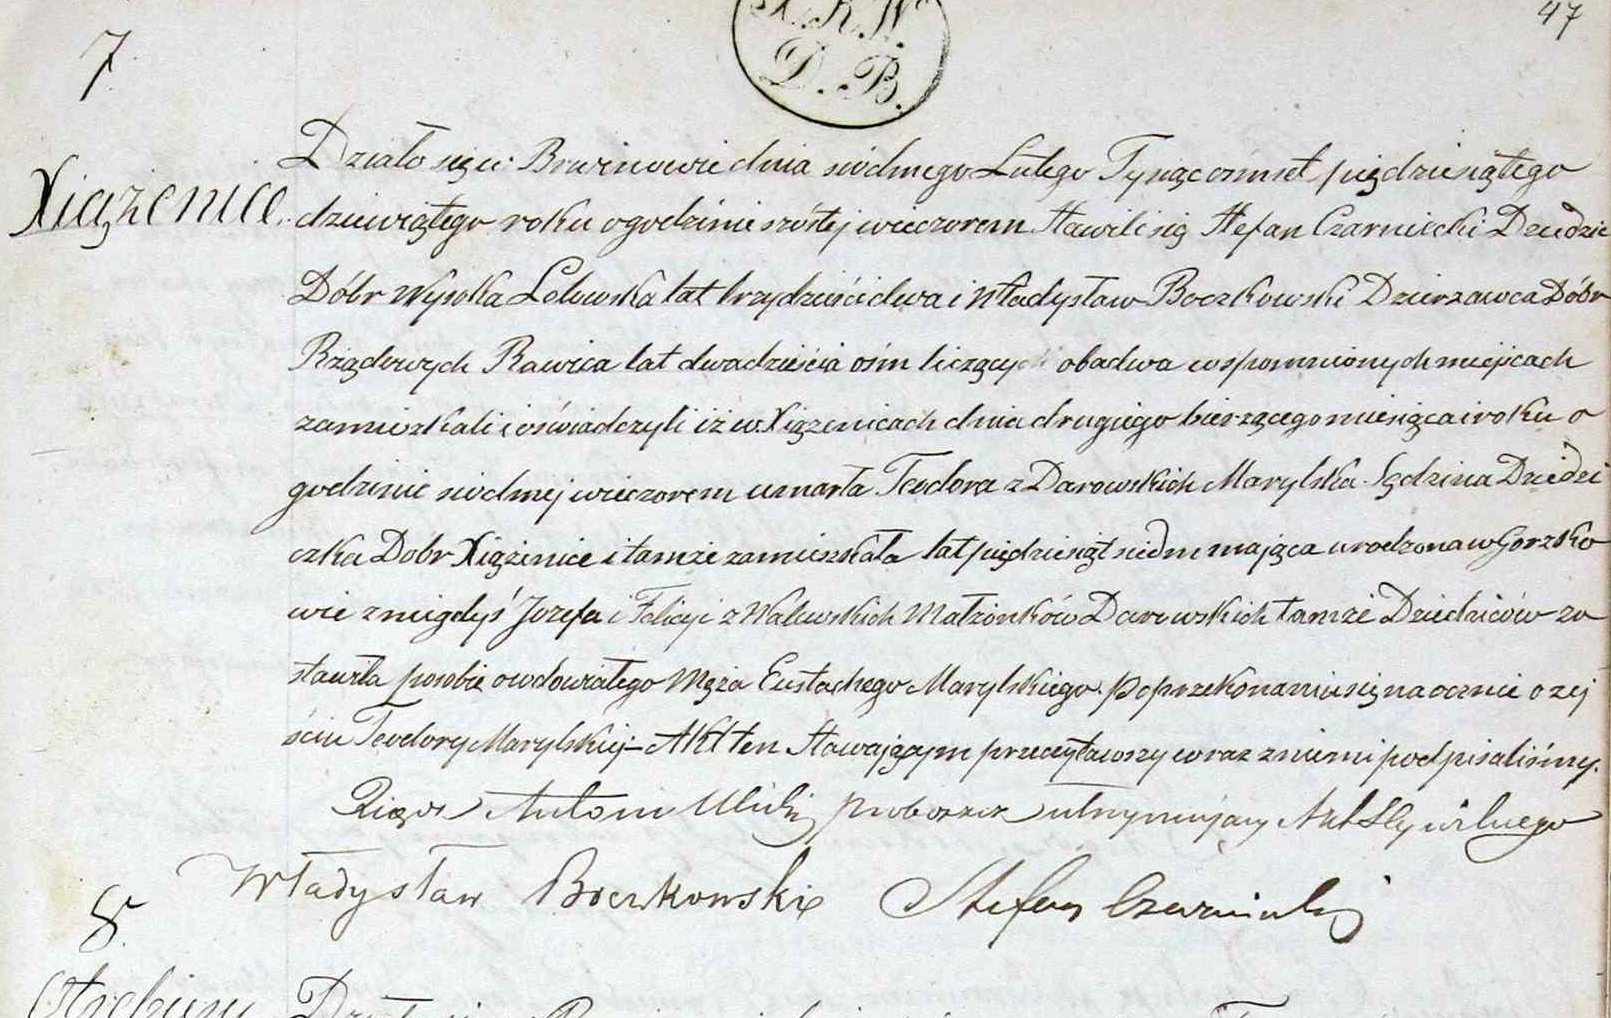 47
K.R.W.
D.B.
7
Xiążenice.
Działo się w Brwinowie dnia siódmego Lutego Tysiąc ośmset pięćdziesiątego
dziewiątego roku o godzinie szóstej wieczorem Stawili się Stefan Czarniecki Dziedzic
Dóbr Wysoka Lelowska lat trzydzieści dwa i Władysław Boczkowski Dzierzawca Dóbr
Rządowych Rawica lat dwadzieścia ośm liczący obadwa wspomnionych miejscach
zamieszkali i oświadczyli iż w Xiążenicach dnia drugiego bierzącego miesiąca i roku o
godzinie siódmej wieczorem umarła Teodora z Darowskich Marylska Sędzina Dziedzi
czka Dobr Xiążenice i tamże zamieszkała lat pięćdziesiąt siedm mająca urodzona w Gorzko
wie z niegdyś Jozefa i Felicyi z Walewskich Małżonków Darowskich tamże Dziedziców zo
stawiła po sobie owdowiałego Męża Eustachego Marylskiego. Po przekonaniu się naocznie o zej
ściu Teodory Marylskiej – Akt ten Stawającym przeczytawszy wraz z niemi podpisaliśmy.
Xiądz Antoni Ulicki proboszcz utrzymujący Akt Sty Cywilnego
Władysław Boczkowski Stefan Czarniecki
8.
Otrębusy